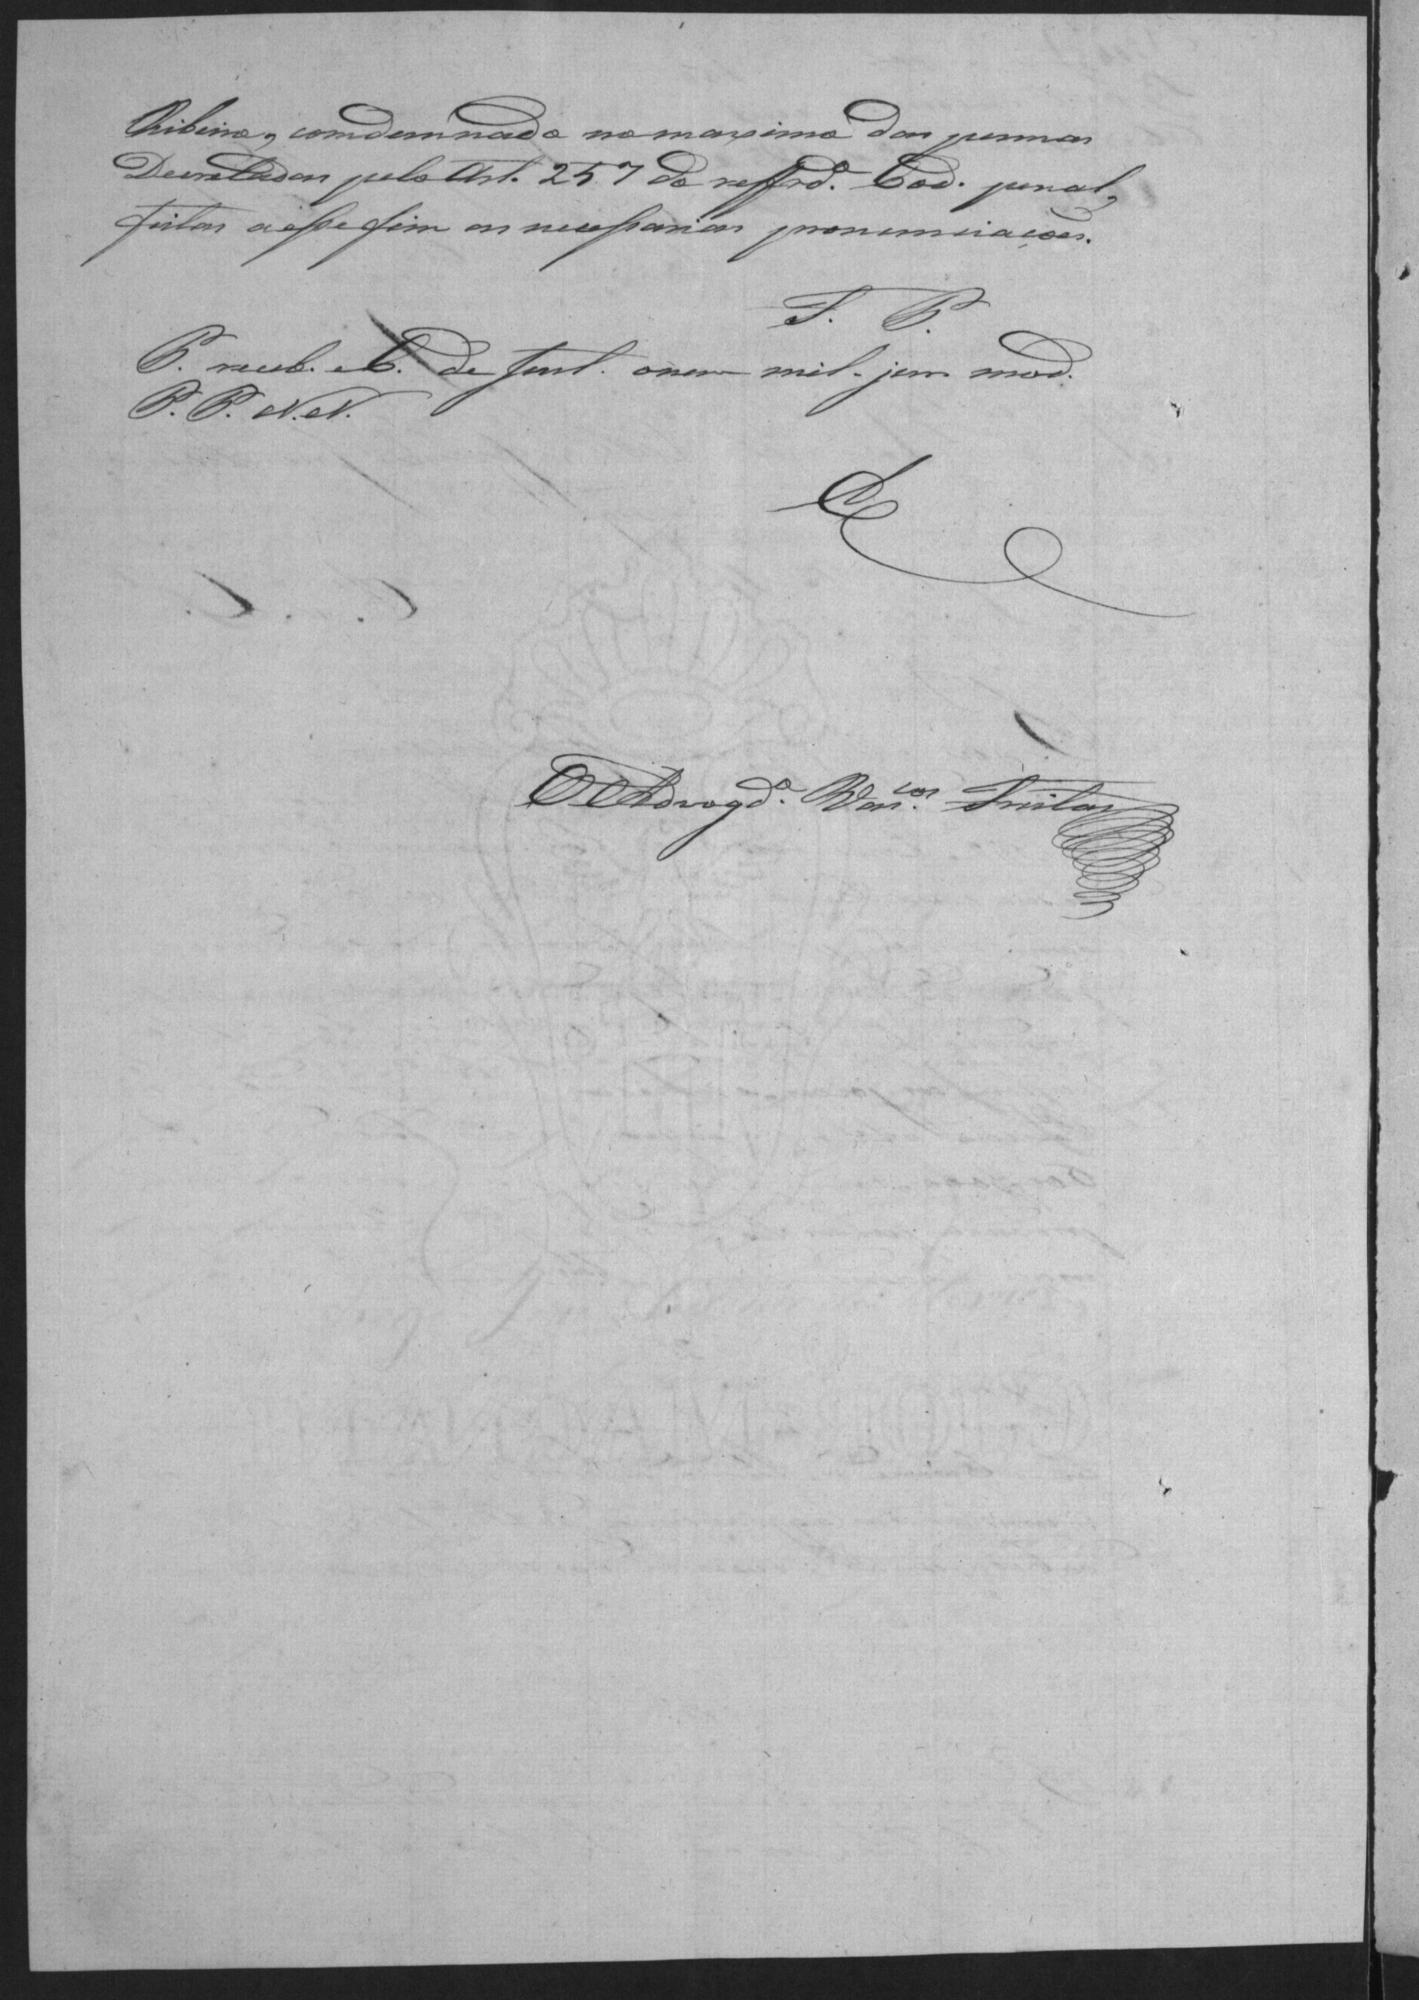 Ribeiro, comdemnado no maximo das pennas
Decretadas pelo Art. 257 do reffrd.º Cod. penal,
feitas a esse fim as necessarias pronunciações.
F. P.
P. receb. e C. de Just. omn mel. jur. mod.
P. P. N. N.
C
O Advogd.º Vas.cos Freitas